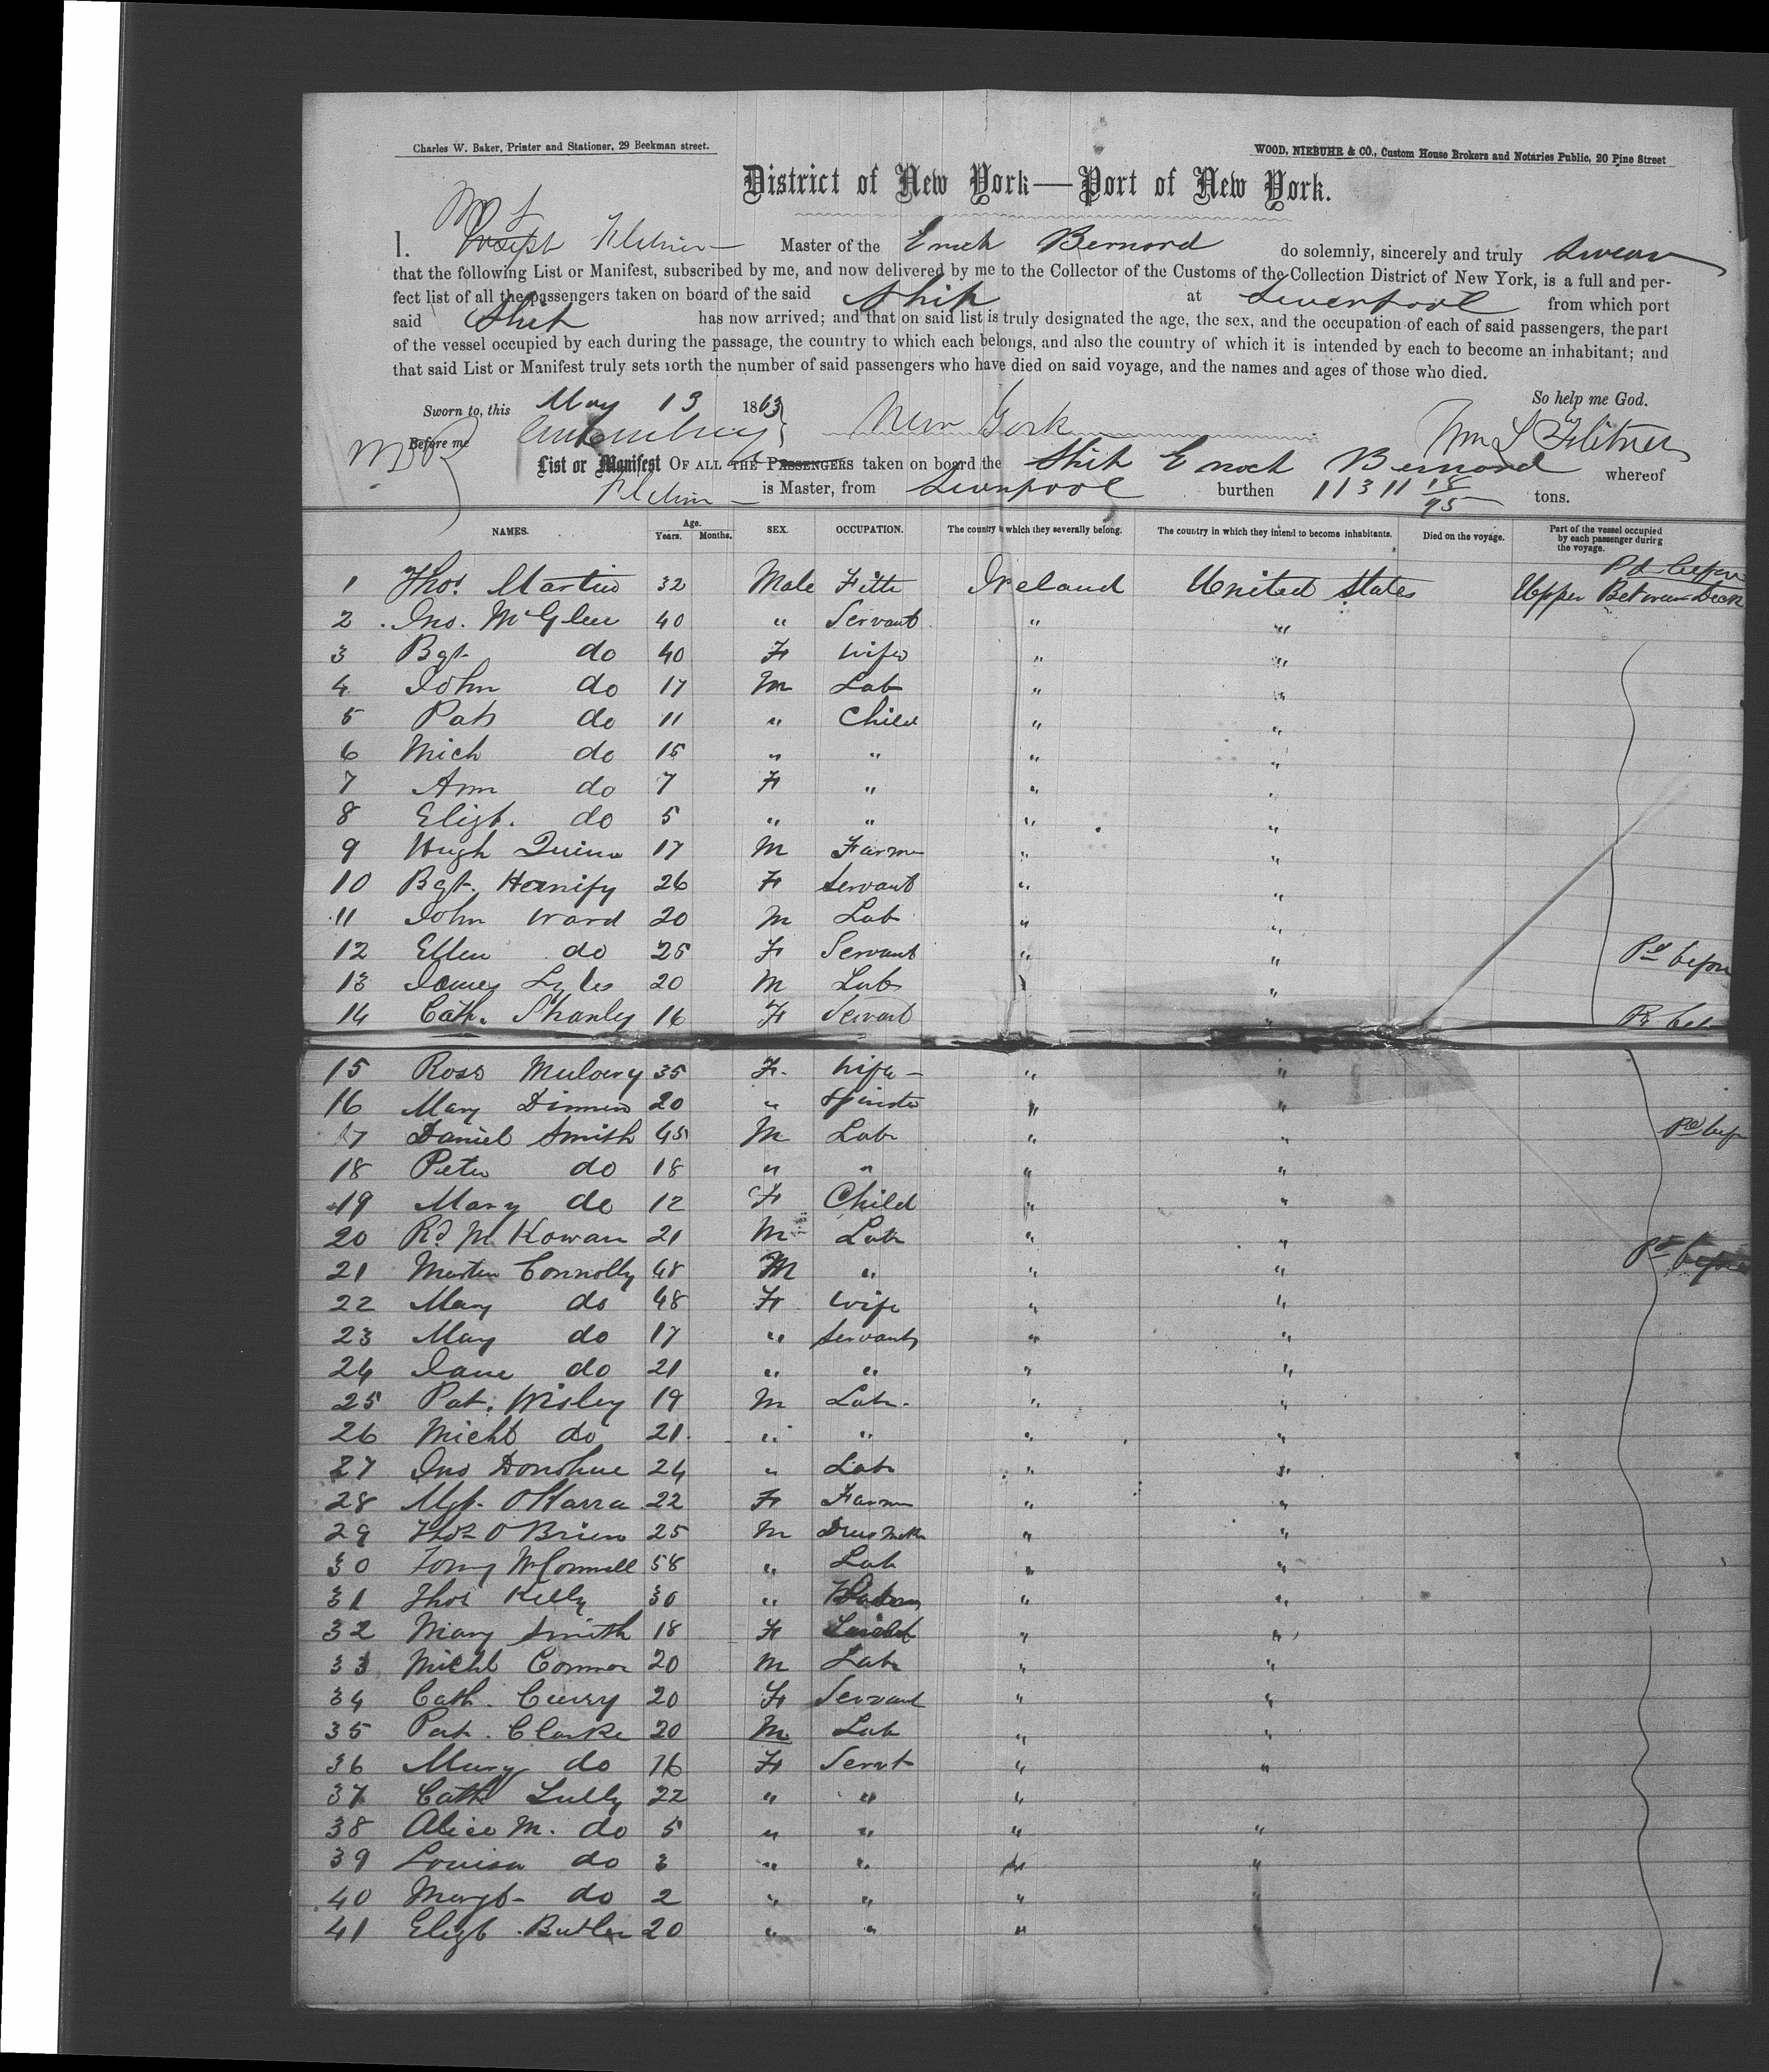 Charles W. Baker, Printer and Stationer, 29 Beekman street.
WOOD, NIEBUHR & CO., Custom House Brokers and Notaries Public, 20 Pine Street
District of New York—Port of New York.
I. Master of the Enoch Bernord do solemnly, sincerely and truly swear
that the following List or Manifest, subscribed by me, and now delivered by me to the Collector of the Customs of the Collection District of New York, is a full and per-
fect list of all the passengers taken on board of the said Ship at Liverpool from which port
said Ship has now arrived; and that on said list is truly designated the age, the sex, and the occupation of each of said passengers, the part
of the vessel occupied by each during the passage, the country to which each belongs, and also the country of which it is intended by each to become an inhabitant; and
that said List or Manifest truly sets forth the number of said passengers who have died on said voyage, and the names and ages of those who died.
So help me God.
Sworn to, this May 13 1863 New York
Before me Wm L Flitner
List or Manifest OF ALL THE PASSENGERS taken on board the Ship Enoch Bernord whereof
is Master, from Liverpool burthen tons.
NAMES. Age. Years. Months. SEX. OCCUPATION. The country to which they severally belong. The country in which they intend to become inhabitants. Died on the voyage. Part of the vessel occupied by each passenger during the voyage.
1 Thos. Martin 32 Male Ireland United States Upper Between Deck
2 Jno. McGlen 40 " Servant " "
3 Bgt do 40 F wife " "
4 John do 17 M Lab " "
5 Pat do 11 " Child " "
6 Mich do 15 " " " "
7 Ann do 7 F " " "
8 Elizt. do 5 " " " "
9 Hugh Quinn 17 M Farm " "
10 Bgt. 26 F Servant " "
11 John Ward 20 M Lab " "
12 Ellen do 25 F Servant " " Pd before
13 James 20 M Lab "
14 Cath. Shanly 16 F Servant "
15 Ross 35 F. wife " "
16 Mary 20 " Spinster " "
17 Daniel Smith 45 M Labr " " Pd bef
18 Peter do 18 " " " "
19 Mary do 12 F Child " "
20 Rd McKowan 21 M Lab " "
21 Martin Connolly 48 M " " " Pd before
22 Mary do 48 F wife " "
23 Mary do 17 " servant " "
24 Jane do 21 " " " "
25 Pat. 19 M Labr. " "
26 Michl do 21 " " " "
27 Jno Donohue 24 " Labr " "
28 Mgt. OHarra 22 F Farm " "
29 Thos OBrien 25 M " "
30 McConnell 58 " Lab " "
31 Thos Kelly 30 " " "
32 Mary Smith 18 F " "
33 Michl Connor 20 M Labr " "
34 Cath. Curry 20 F Servant " "
35 Pat. Clarke 20 M Lab " "
36 Mary do 16 F Servt " "
37 Cath Lully 22 " " "
38 Alice M. do 5 " " " "
39 Louisa do 3 " " " "
40 Margt do 2 " " " "
41 Elizt Butler 20 " " " "